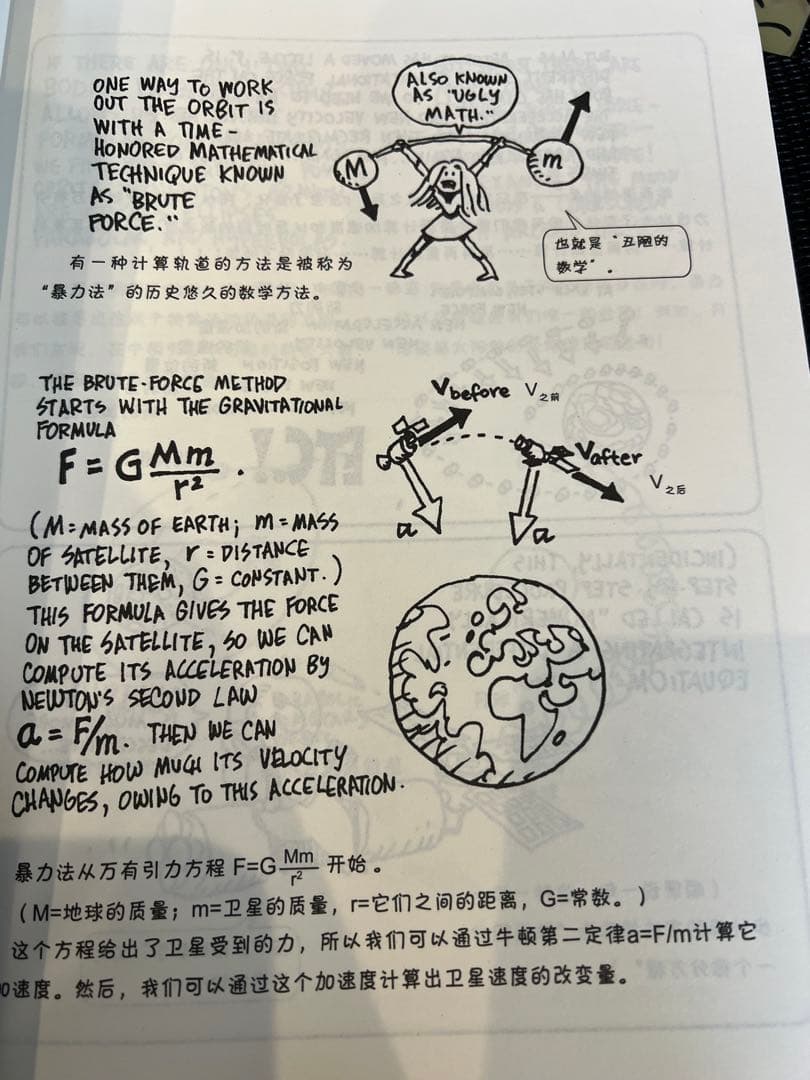 ONE WAY TO WORK
OUT THE ORBIT IS
WITH A TIME-
HONORED MATHEMATICAL
TECHNIQUE KNOWN
AS "BRUTE
FORCE."
ALSO KNOWN
AS "UGLY
MATH."
M
m
有一种计算轨道的方法是被称为
“暴力法”的历史悠久的数学方法。
也就是“丑陋的
数学”。
THE BRUTE-FORCE METHOD
STARTS WITH THE GRAVITATIONAL
FORMULA
F = G Mm/r² .
(M = MASS OF EARTH; m = MASS
OF SATELLITE, r = DISTANCE
BETWEEN THEM, G = CONSTANT.)
THIS FORMULA GIVES THE FORCE
ON THE SATELLITE, SO WE CAN
COMPUTE ITS ACCELERATION BY
NEWTON'S SECOND LAW
a = F/m. THEN WE CAN
COMPUTE HOW MUCH ITS VELOCITY
CHANGES, OWING TO THIS ACCELERATION.
Vbefore V之前
Vafter
V之后
a
a
暴力法从万有引力方程 F=G Mm/r² 开始。
（M=地球的质量；m=卫星的质量，r=它们之间的距离，G=常数。）
这个方程给出了卫星受到的力，所以我们可以通过牛顿第二定律a=F/m计算它
速度。然后，我们可以通过这个加速度计算出卫星速度的改变量。